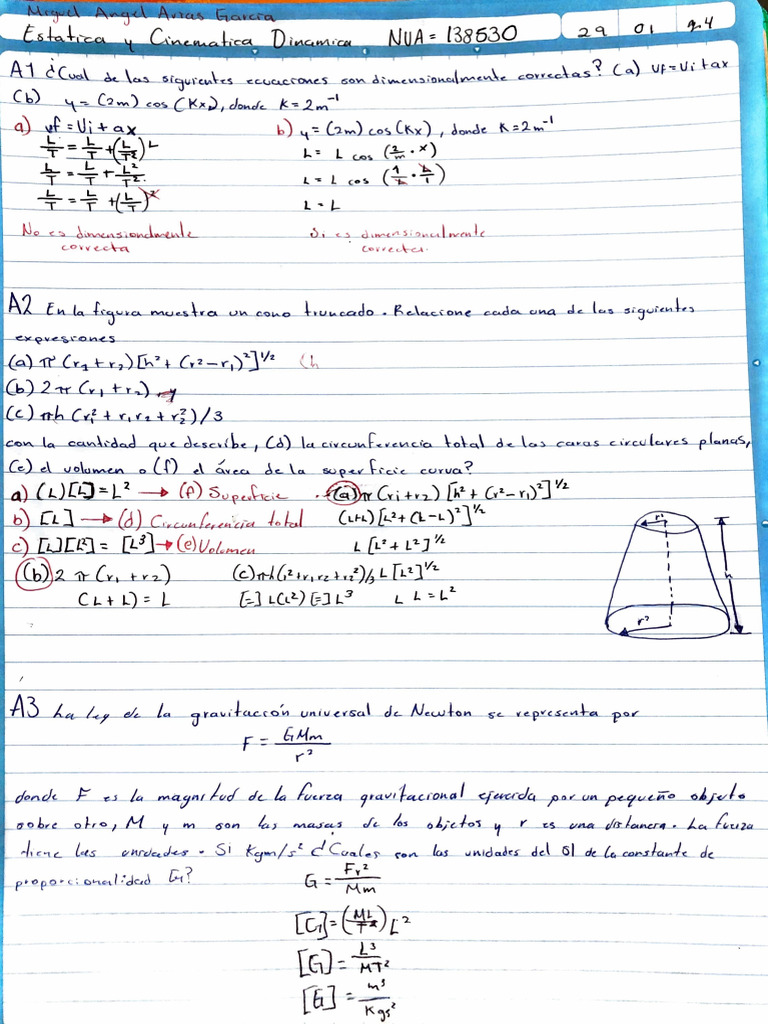 Miguel Angel Arras Garcia
Estatica y Cinematica Dinamica NUA = 138530 29 01 9.4
A1 ¿Cual de las siguientes ecuaciones son dimensionalmente correctas? (a) vf = vi + ax
(b) y = (2m) cos (Kx), donde K = 2m⁻¹
a) vf = Vi + ax
L/T = L/T + (L/T²) L
L/T = L/T + L²/T²
L/T = L/T + (L/T)²
No es dimensionalmente
correcta
b) y = (2m) cos (Kx), donde K = 2m⁻¹
L = L cos (2/m · x)
L = L cos (1/L · L/1)
L = L
Si es dimensionalmente
correcta.
A2 En la figura muestra un cono truncado. Relacione cada una de las siguientes
expresiones
(a) π (r₁ + r₂) [h² + (r² - r₁)²]^1/2 (h
(b) 2π (r₁ + r₂)
(c) πh (r₁² + r₁r₂ + r₂²) / 3
con la cantidad que describe, (d) la circunferencia total de las caras circulares planas,
(e) el volumen o (f) el área de la superficie curva?
a) (L) [L] = L² → (f) Superficie
b) [L] → (d) Circunferencia total
c) [L][L²] = [L³] → (e) Volumen
(a) π (ri + r₂) [h² + (r² - r₁)²]^1/2
(L+L) [L² + (L - L)²]^1/2
L [L² + L²]^1/2
L [L²]^1/2
L L = L²
(b) 2 π (r₁ + r₂)
(L + L) = L
(c) πh (r² + r₁r₂ + r₂²)/3
[=] L(L²) [=] L³
r¹
h
r²
A3 La ley de la gravitación universal de Newton se representa por
F = GMm / r²
donde F es la magnitud de la fuerza gravitacional ejercida por un pequeño objeto
sobre otro, M y m son las masas de los objetos y r es una distancia. La fuerza
tiene las unidades. Si Kgm/s² ¿Cuales son las unidades del SI de la constante de
proporcionalidad G?
G = Fr² / Mm
[G] = (ML/T²) L²
[G] = L³ / MT²
[G] = m³ / Kgs²